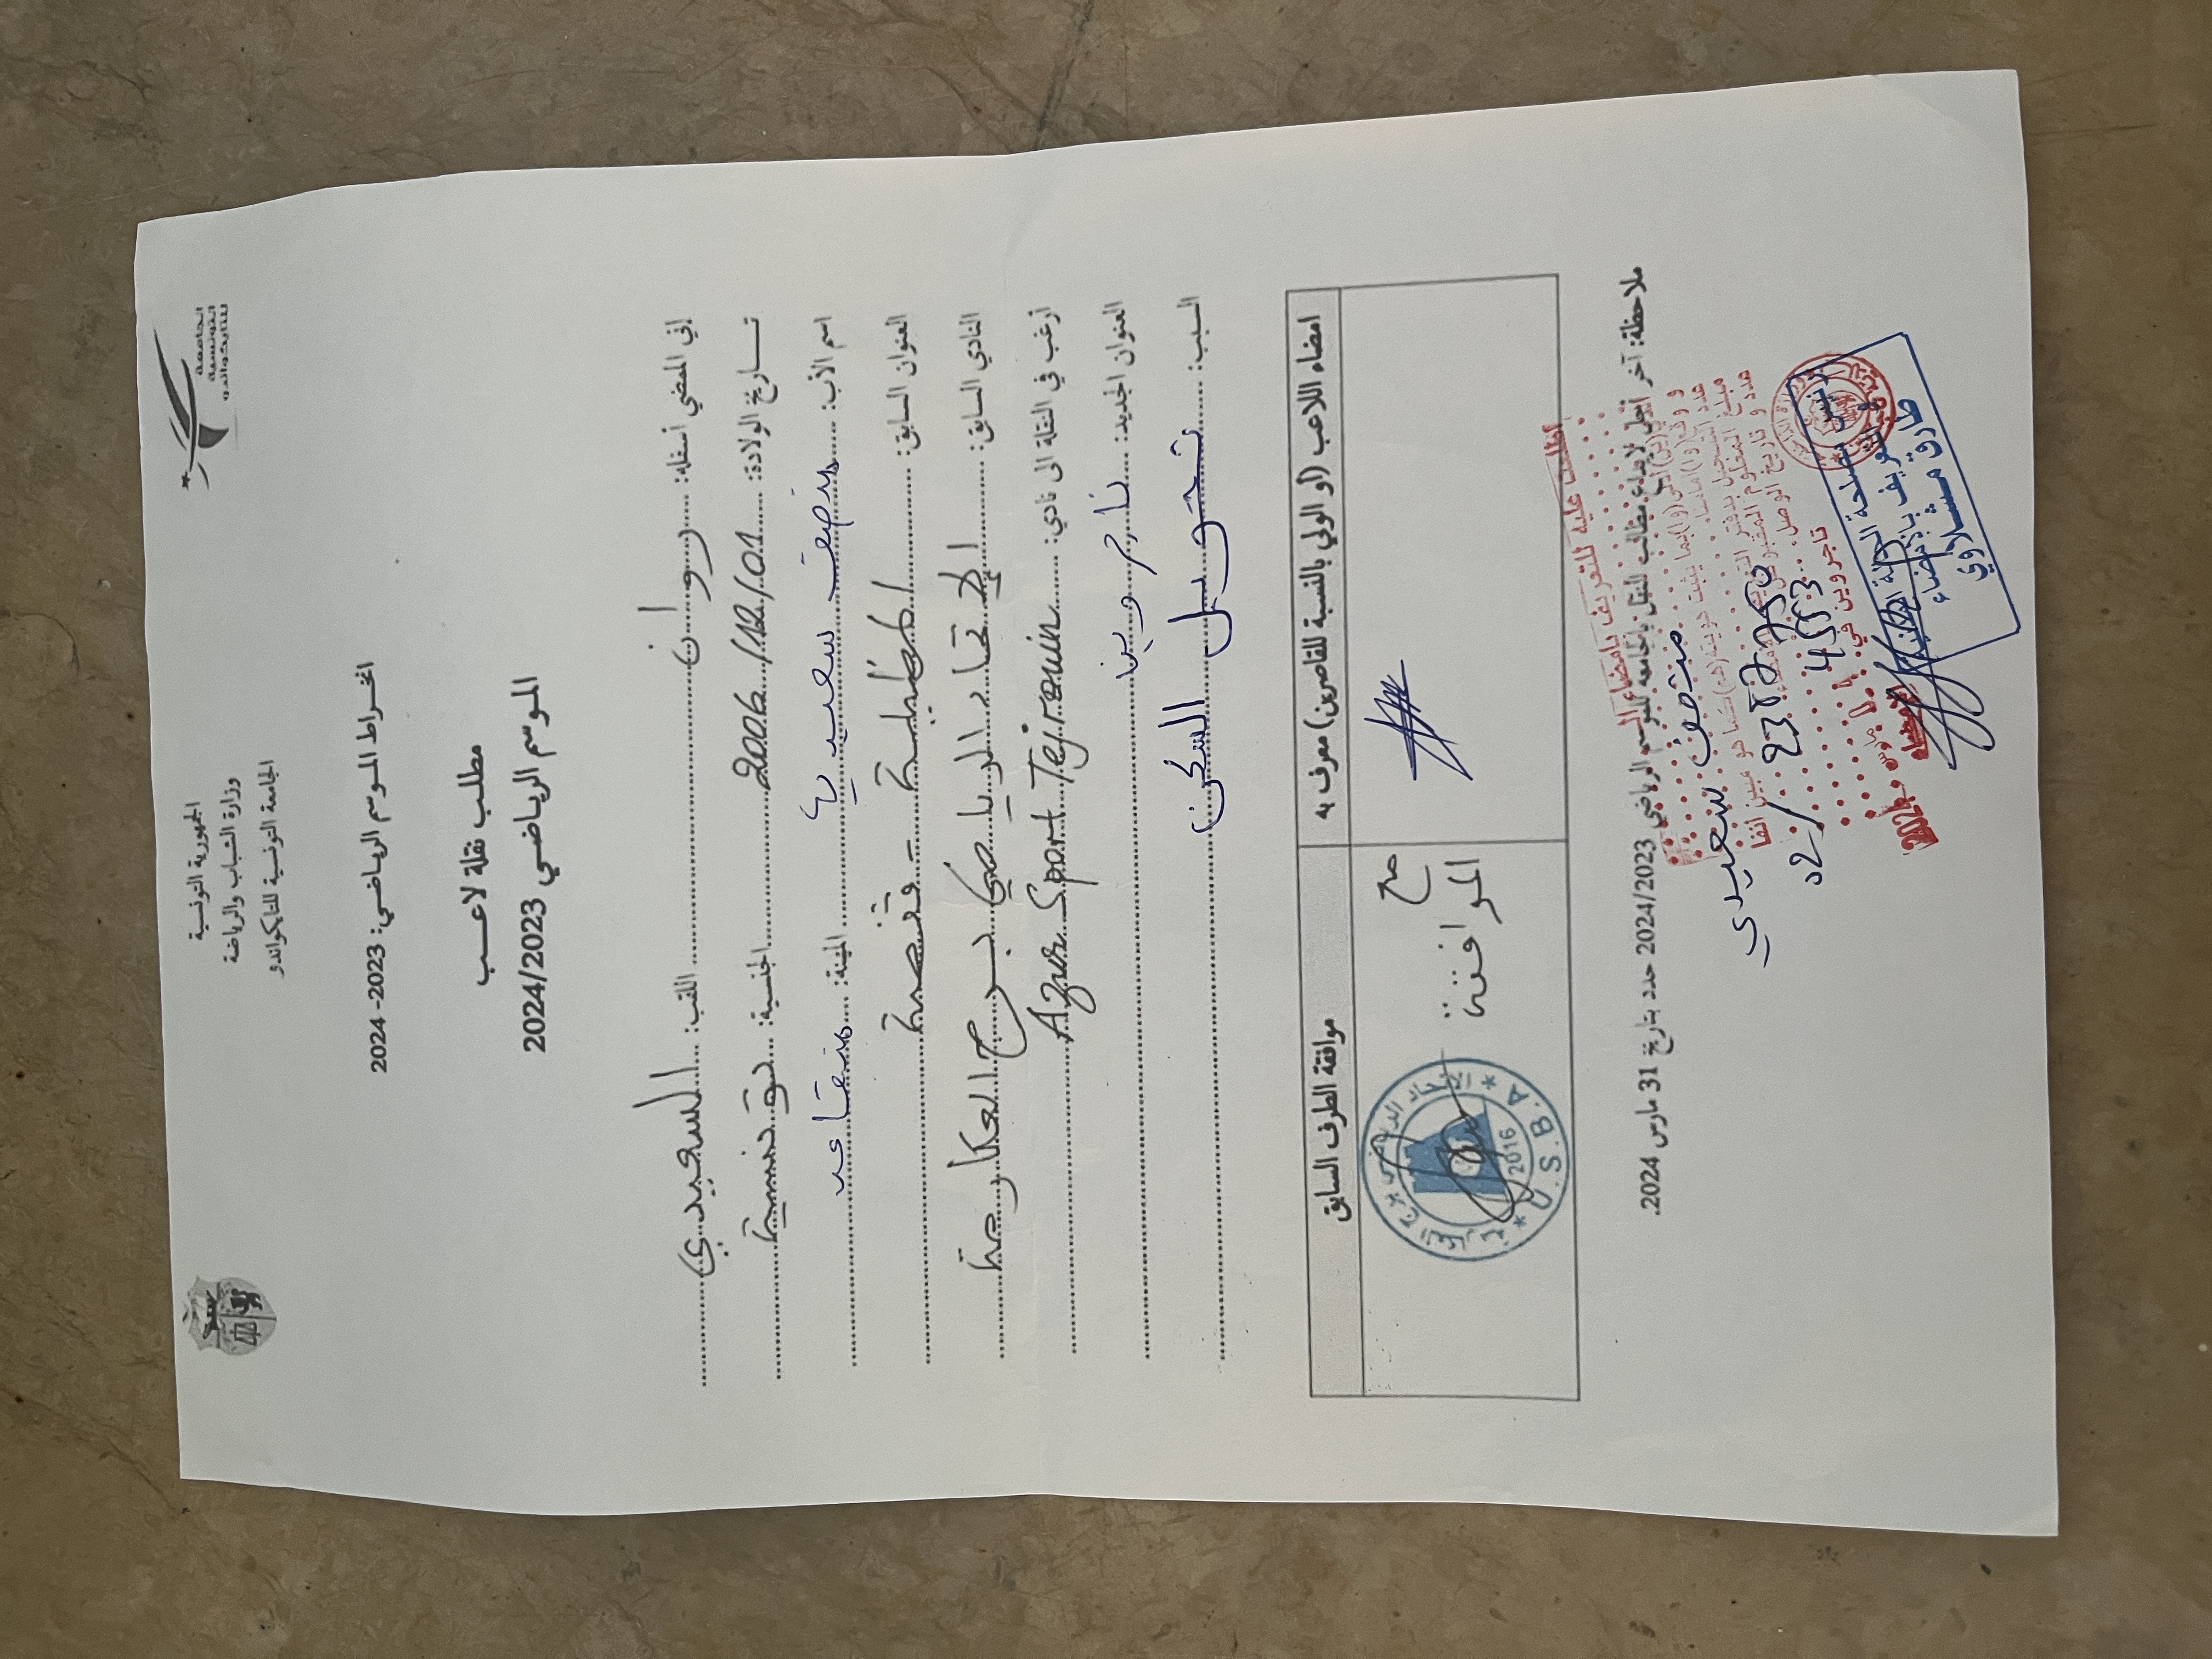 الجمهورية التونسية
وزارة الشباب والرياضة
الجامعة التونسية للتايكواندو
الجامعة
التونسية
للتايكواندو
انخراط الموسم الرياضي: 2023-2024
مطلب نقلة لاعب
الموسم الرياضي 2024/2023
إني الممضي أسفله: روان اللقب: السعيدي
تاريخ الولادة: 2006/12/01 الجنسية: تونسية
اسم الأب: منصف سعيدي المهنة: متقاعد
العنوان السابق: المظيلة - قفصة
النادي السابق: الاتحاد الرياضي ببرج العكارمة
أرغب في النقلة الى نادي: Azur Sport Tejrouin
العنوان الجديد: تاجروين
السبب: تحويل السكن
امضاء اللاعب (أو الولي بالنسبة للقاصرين) معرف به
موافقة الطرف السابق
مع
الموافقة
U.S.B.A
2016
ملاحظة: آخر أجل لإيداع مطالب النقل بالجامعة للموسم الرياضي 2024/2023 حدد بتاريخ 31 مارس 2024.
اطلعت عليه للتعريف بامضاء السيد
منصف سعيدي
عدد و تاريخ الوصل
تاجروين في
2024
طارق مشلاوي